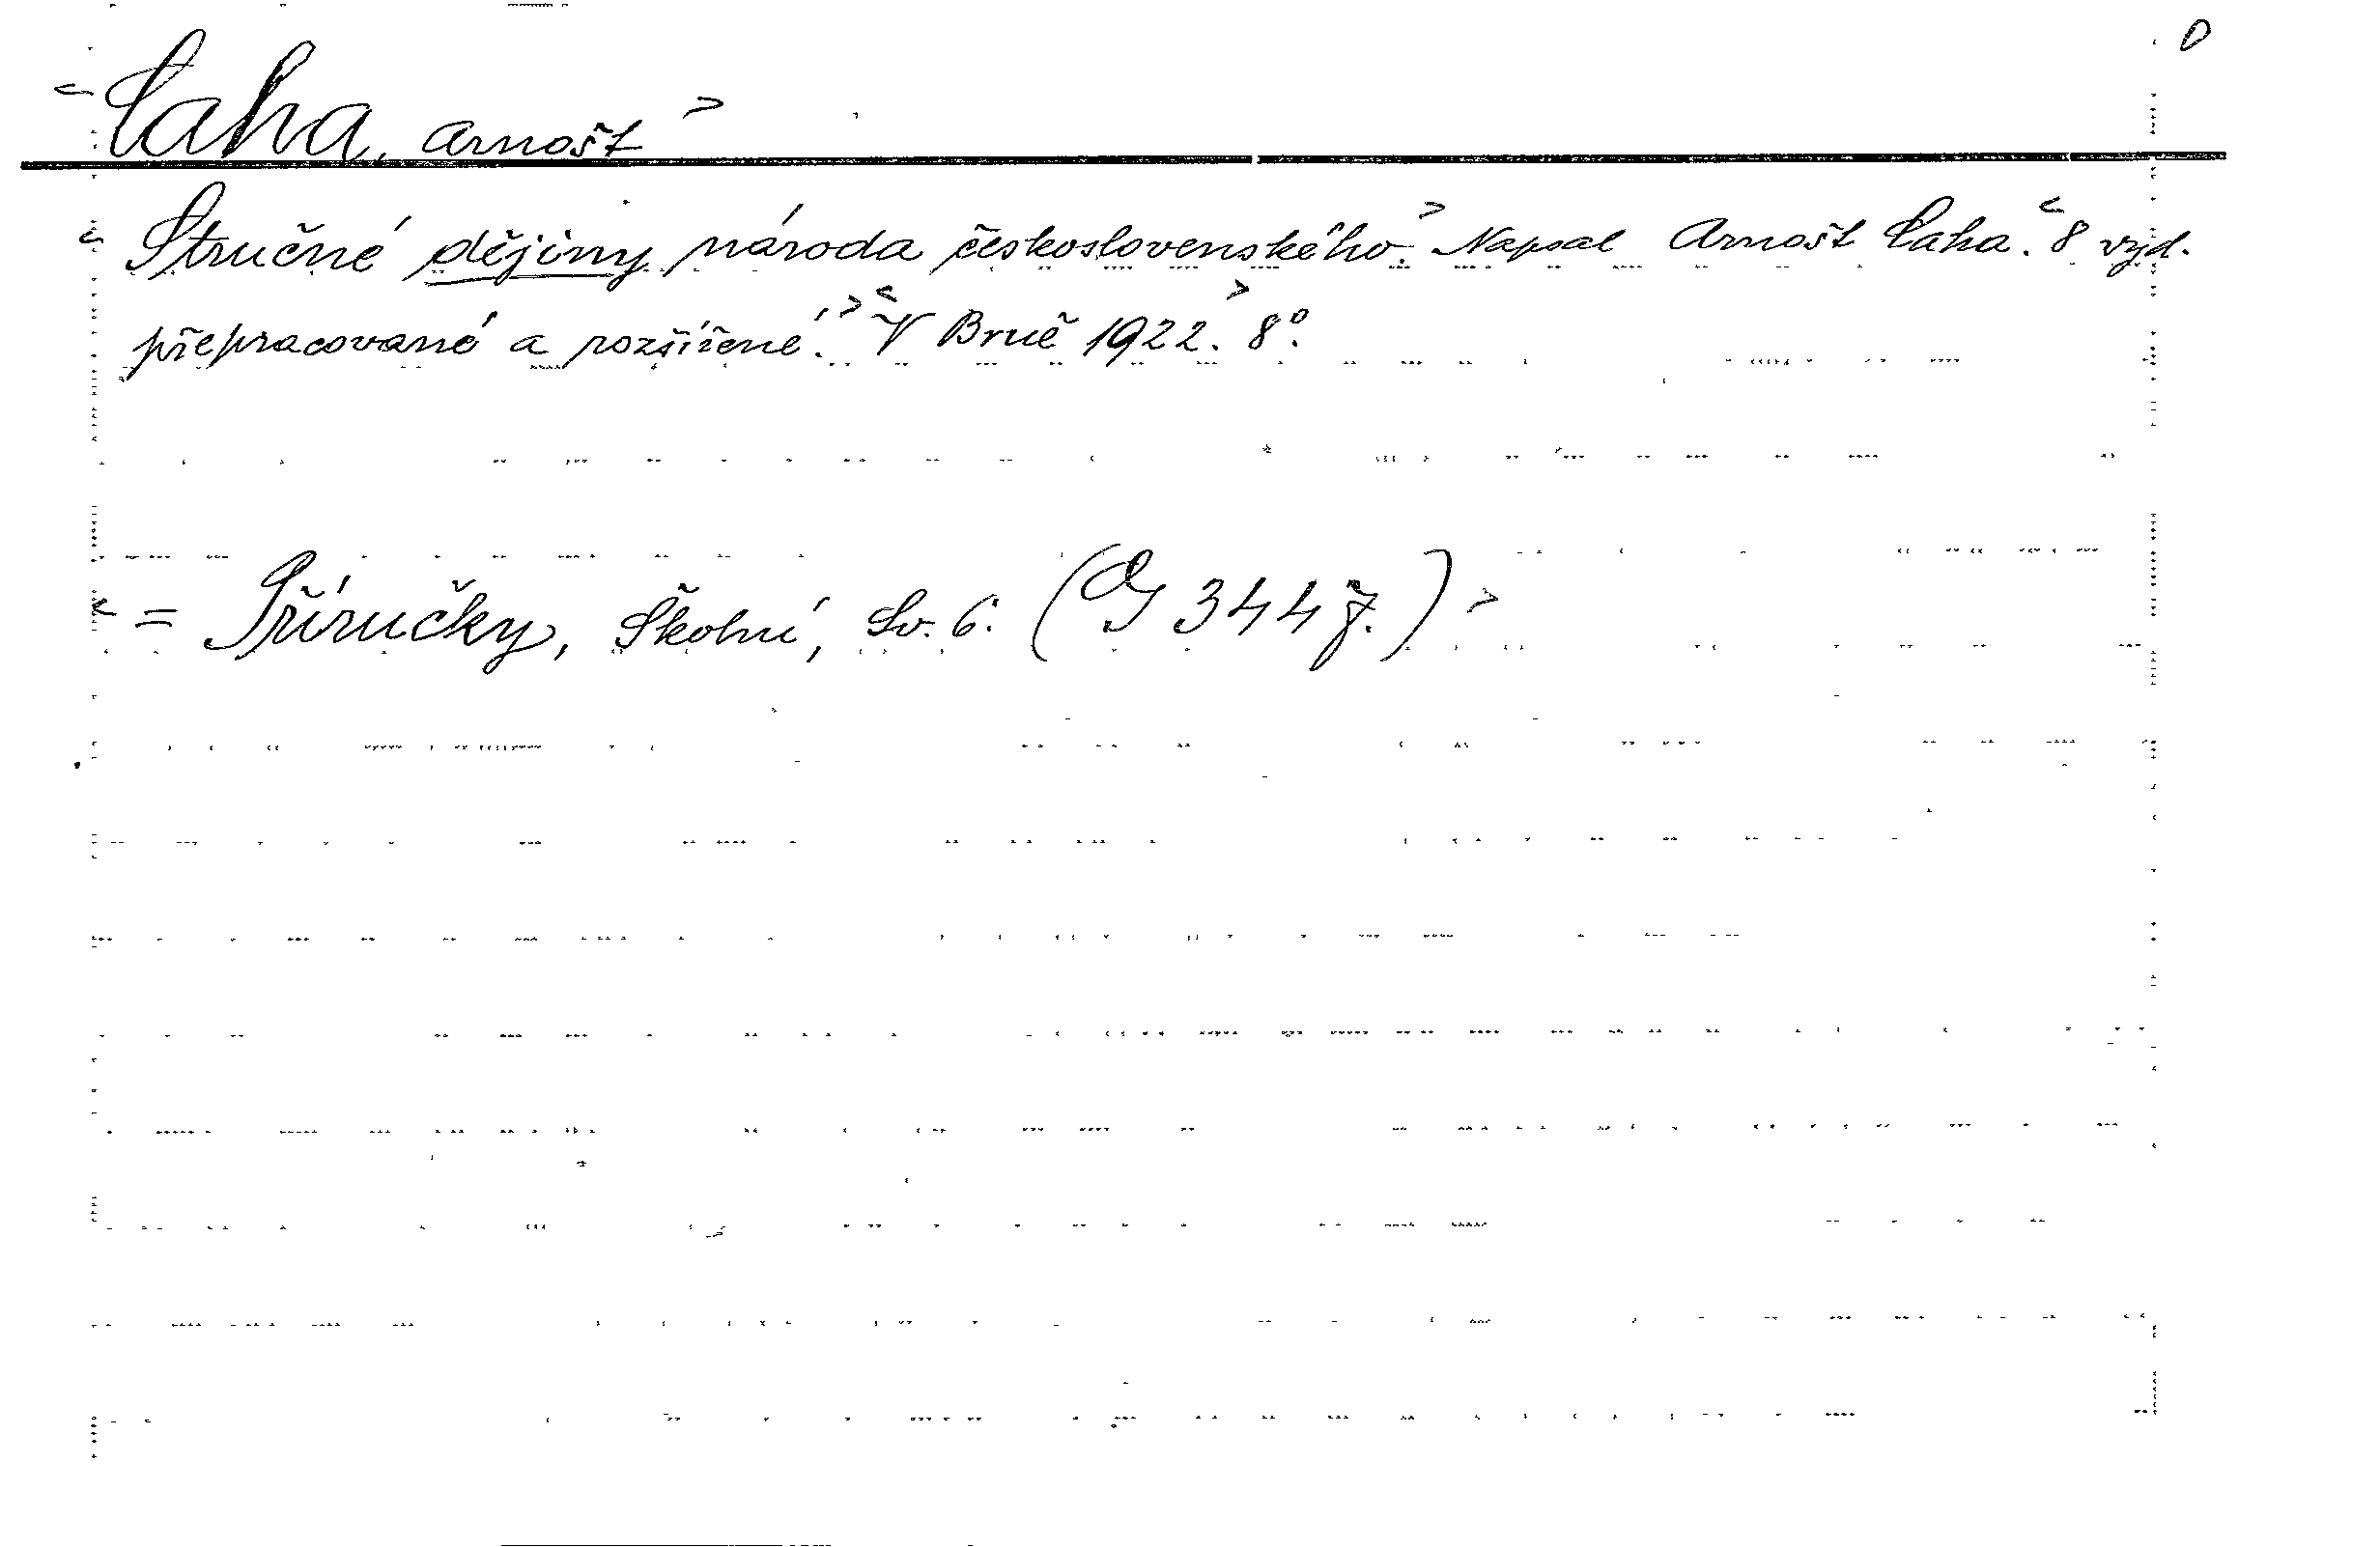 < Caha, Arnošt >
< Stručné dějiny národa československého. > Napsal Arnošt Caha. < 8 vyd.
přepracované a rozšířené. > < V Brně 1922. > 8°.
< = Příručky, Školní, Sv. 6. >